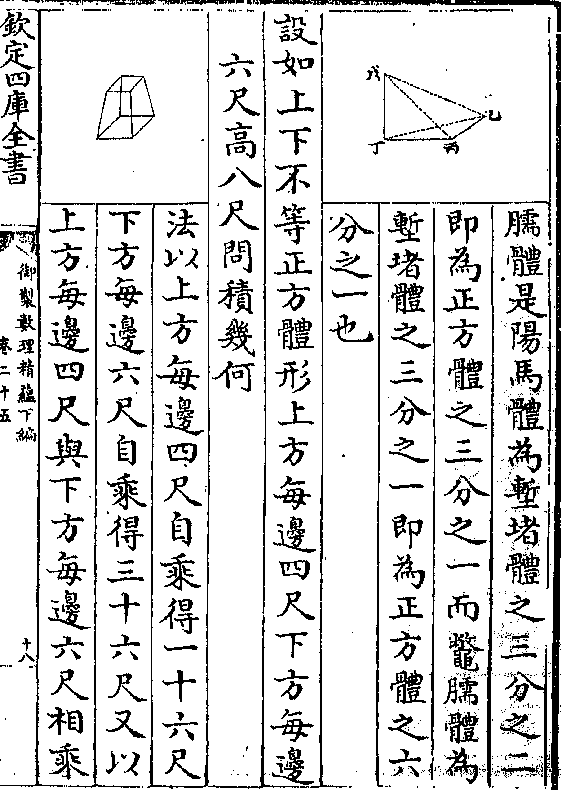 臑體是陽馬體為塹堵體之三分之二
即為正方體之三分之一而鼈臑體為
塹堵體之三分之一即為正方體之六
分之一也
戊
丁
丙
乙
設如上下不等正方體形上方每邊四尺下方每邊
六尺高八尺問積幾何
法以上方每邊四尺自乘得一十六尺
下方每邊六尺自乘得三十六尺又以
上方每邊四尺與下方每邊六尺相乘
欽定四庫全書
御製數理精蘊下編
卷二十五
十八